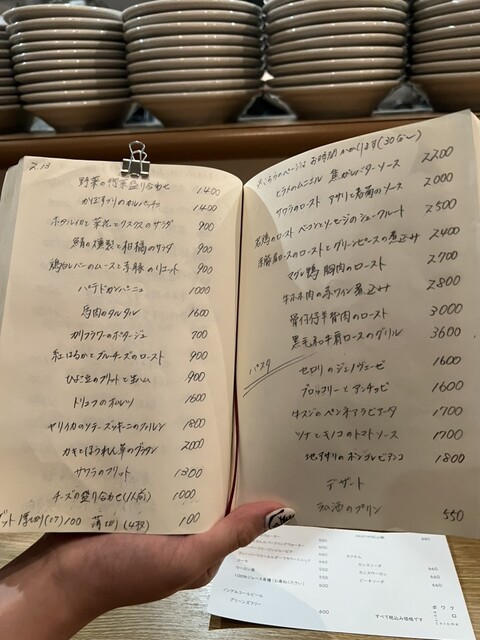 2.13
野菜の惣菜盛り合わせ 1400
かじきマグロのカルパッチョ 1400
ホタルイカと菜花とクスクスのサラダ 900
鯖の燻製と柑橘のサラダ 900
鶏白レバーのムースと金柑のリコッタ 900
パテドカンパーニュ 1000
馬肉のタルタル 1600
カリフラワーのポタージュ 700
紅はるかとブルーチーズのロースト 900
ひよこ豆のフリットと生ハム 900
トリュフのオムレツ 1600
ヤリイカのソテー ズッキーニのフィルン 1800
カキとほうれん草のグラタン 2000
サワラのフリット 1300
チーズの盛り合わせ(1人前) 1000
厚切り(2ヶ)100 薄切り(4枚) 100
こちらのページは お時間 かかります(30分〜)
ヒラメのムニエル 焦がしバターソース 2200
サワラのロースト アサリと春菊のソース 2000
若鶏のロースト ベーコンとソーセージのシュークルート 2500
肩ロースのローストとグリーンピースの煮込み 2400
マグレ鴨 胸肉のロースト 2700
牛ホホ肉の赤ワイン煮込み 2800
骨付仔羊背肉のロースト 3000
黒毛和牛肩ロースのグリル 3600
パスタ
セロリのジェノヴェーゼ 1600
ブロッコリーとアンチョビ 1600
牛スジのペンネアラビアータ 1700
ツナとキノコのトマトソース 1700
地ハマグリのボンゴレビアンコ 1800
デザート
ラム酒のプリン 550
ノンアルコールビール
グリーンズフリー 600
カクテル
カシスソーダ 660
カシスウーロン 660
ピーチソーダ 660
すべて税込み価格です
ポワクロ